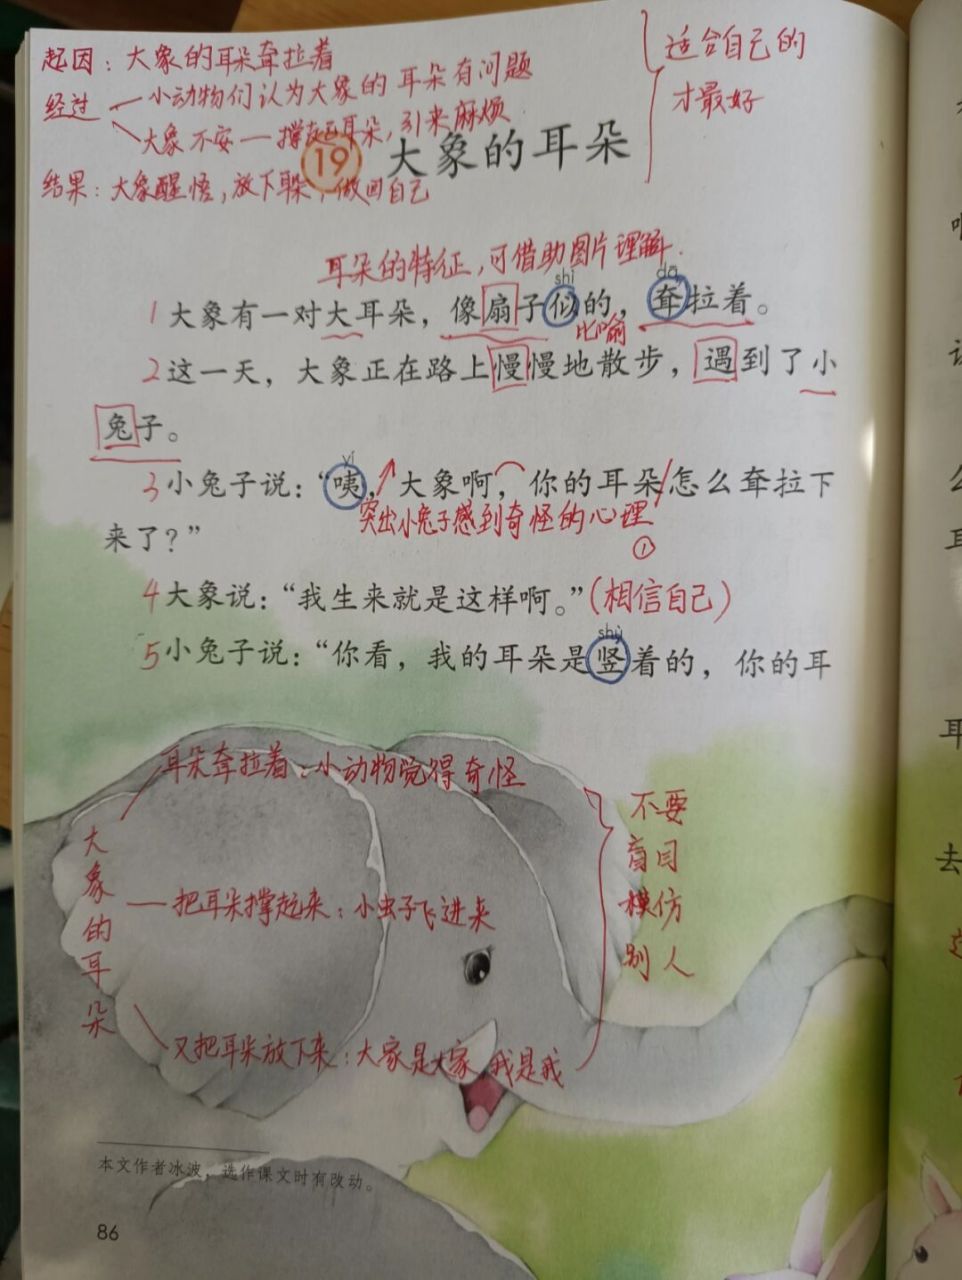 起因：大象的耳朵耷拉着
经过
小动物们认为大象的耳朵有问题
大象不安一撑起耳朵，引来麻烦
结果：大象醒悟，放下耳朵，做回自己
适合自己的
才最好
19 大象的耳朵
耳朵的特征，可借助图片理解.
shì dā
1大象有一对大耳朵，像扇子似的，耷拉着。
比喻
2这一天，大象正在路上慢慢地散步，遇到了小
兔子。
yí
3小兔子说：“咦，大象啊，你的耳朵怎么耷拉下
突出小兔子感到奇怪的心理
来了？”
①
4大象说：“我生来就是这样啊。”（相信自己）
shù
5小兔子说：“你看，我的耳朵是竖着的，你的耳
大象的耳朵
耳朵耷拉着：小动物觉得奇怪
把耳朵撑起来：小虫子飞进来
又把耳朵放下来：大家是大家 我是我
不要
盲目
模仿
别人
本文作者冰波，选作课文时有改动。
86